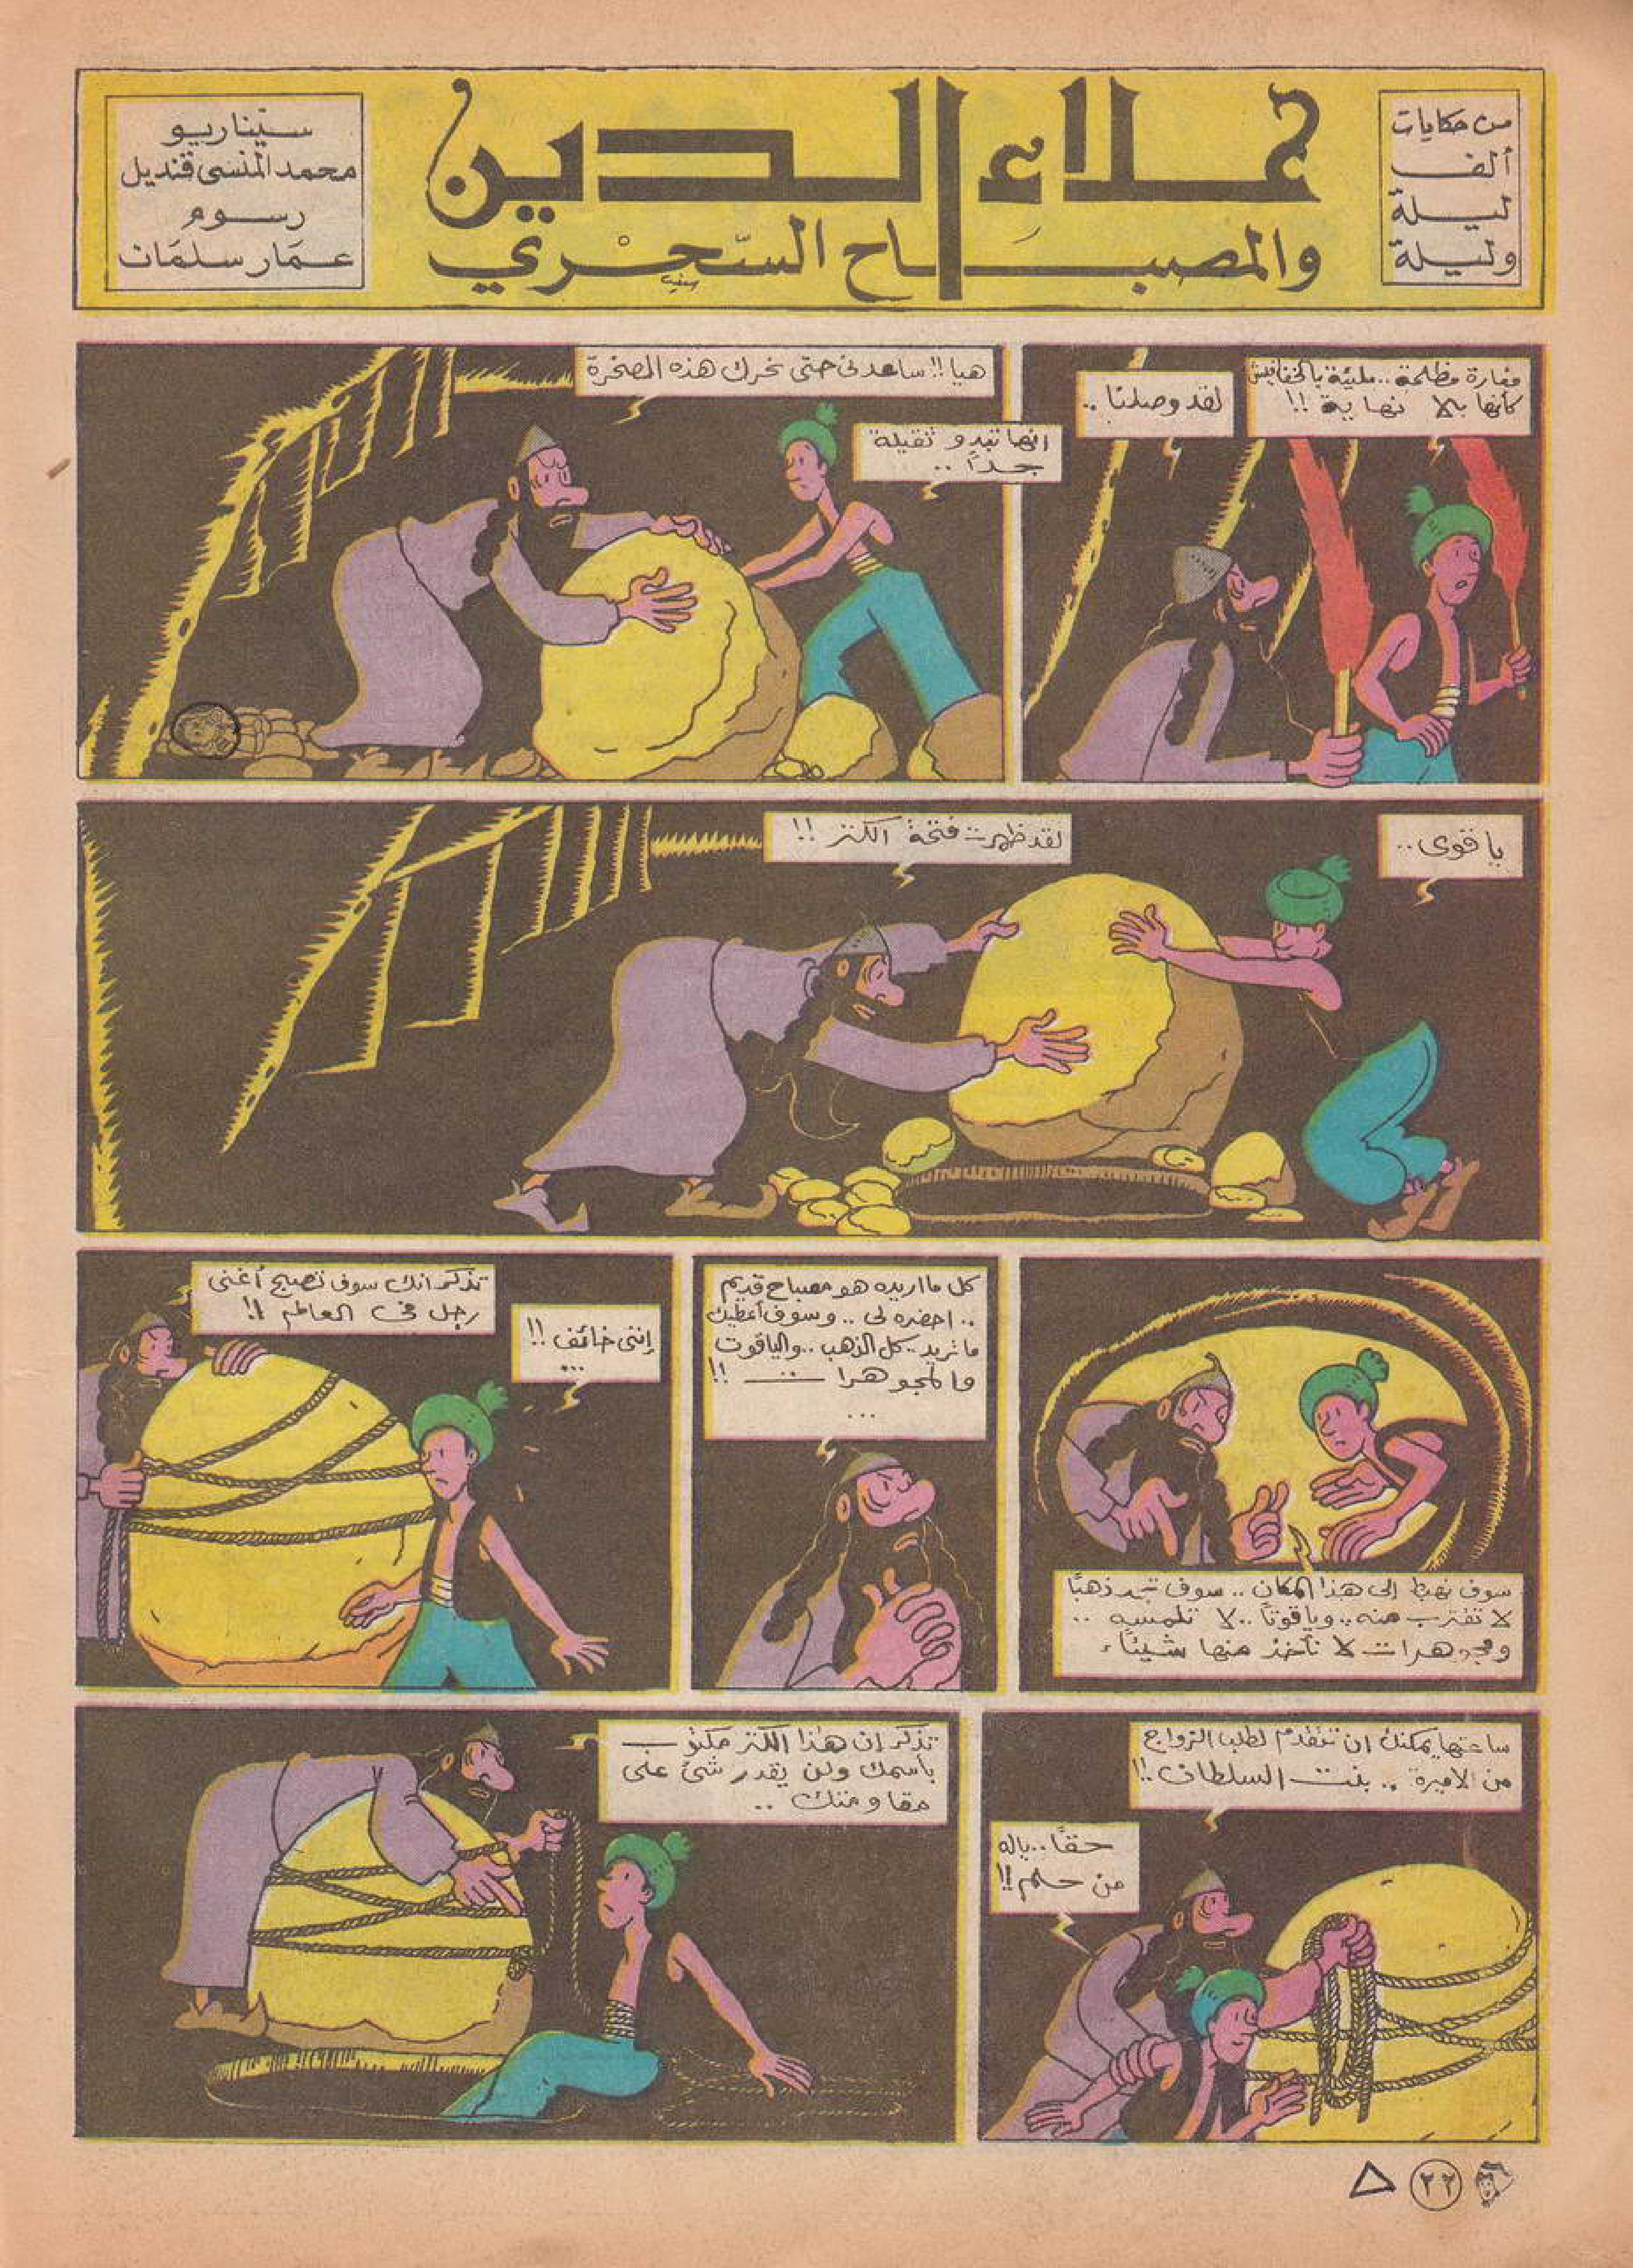 من حكايات
ألف
ليلة
وليلة
علاء الدين
والمصباح السحري
سيناريو
محمد المنسى قنديل
رسوم
عمار سلمان
مغارة مظلمة .. مليئة بالخفافيش
كأنها بلا نهاية !!
لقد وصلنا ..
هيا !! ساعدنى حتى نحرك هذه الصخرة
انها تبدو ثقيلة
جداً ..
يا قوى ..
لقد ظهرت فتحة الكنز !!
سوف نهبط إلى هذا المكان .. سوف تجد ذهبًا
لا تقترب منه .. وياقوتًا .. لا تلمسه ..
ومجوهرات لا تأخذ منها شيئًا
كل ما اريده هو مصباح قديم
.. احضره لى .. وسوف أعطيك
ما تريد .. كل الذهب .. والياقوت
والمجوهرات !!
...
تذكر انك سوف تصبح أغنى
رجل فى العالم !!
إننى خائف !!
...
ساعتها يمكنك ان تتقدم لطلب الزواج
من الاميرة .. بنت السلطان !!
حقًا .. ياله
من حلم !!
تذكر ان هذا الكنز مكتوب
بأسمك ولن يقدر شئ على
مقاومتك ..
٢٢